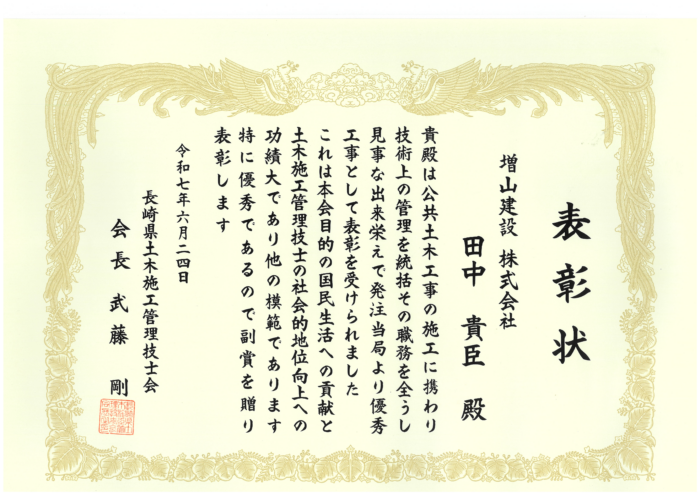 表彰状
増山建設 株式会社
田中 貴臣 殿
貴殿は公共土木工事の施工に携わり
技術上の管理を統括その職務を全うし
見事な出来栄えで発注当局より優秀
工事として表彰を受けられました
これは本会目的の国民生活への貢献と
土木施工管理技士の社会的地位向上への
功績大であり他の模範であります
特に優秀であるので副賞を贈り
表彰します
令和七年六月二四日
長崎県土木施工管理技士会
会長 武藤 剛